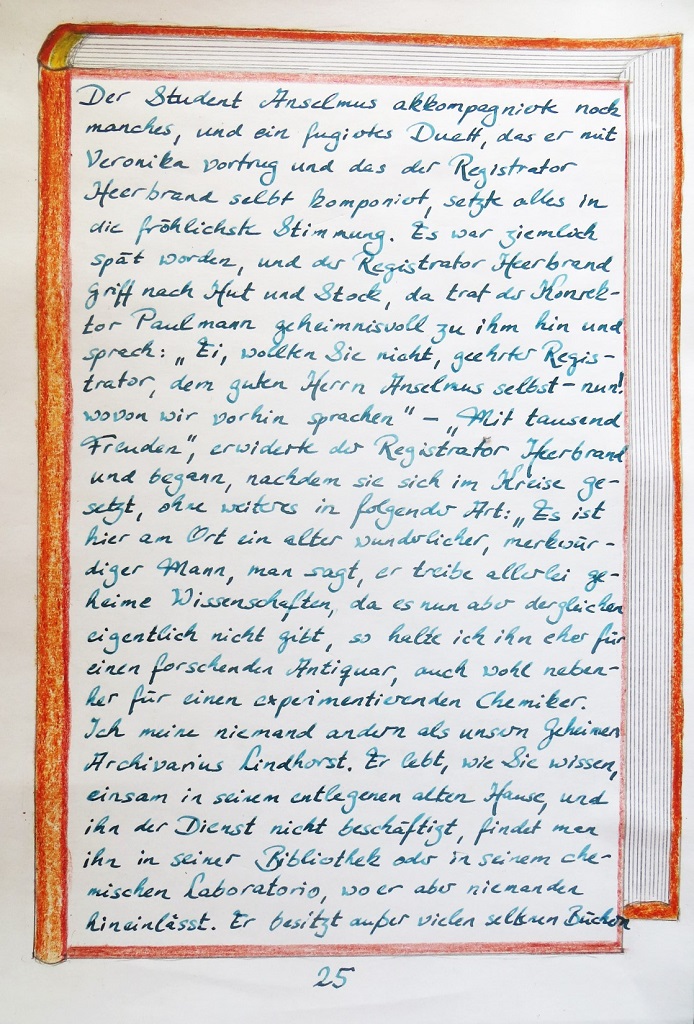 Der Student Anselmus akkompagnierte noch
manches, und ein fugiertes Duett, das er mit
Veronika vortrug und das der Registrator
Heerbrand selbt komponiert, setzte alles in
die fröhlichste Stimmung. Es war ziemlich
spät worden, und der Registrator Heerbrand
griff nach Hut und Stock, da trat der Konrek-
tor Paulmann geheimnisvoll zu ihm hin und
sprach: „Ei, wollten Sie nicht, geehrter Regis-
trator, dem guten Herrn Anselmus selbst – nun!
wovon wir vorhin sprachen" – „Mit tausend
Freuden", erwiderte der Registrator Heerbrand
und begann, nachdem sie sich im Kreise ge-
setzt, ohne weiteres in folgender Art: „Es ist
hier am Ort ein alter wunderlicher, merkwür-
diger Mann, man sagt, er treibe allerlei ge-
heime Wissenschaften, da es nun aber dergleichen
eigentlich nicht gibt, so halte ich ihn eher für
einen forschenden Antiquar, auch wohl neben-
her für einen experimentierenden Chemiker.
Ich meine niemand andern als unsern Geheimen
Archivarius Lindhorst. Er lebt, wie Sie wissen,
einsam in seinem entlegenen alten Hause, und
ihn der Dienst nicht beschäftigt, findet man
ihn in seiner Bibliothek oder in seinem che-
mischen Laboratorio, wo er aber niemanden
hineinlässt. Er besitzt außer vielen seltenen Büchern
25